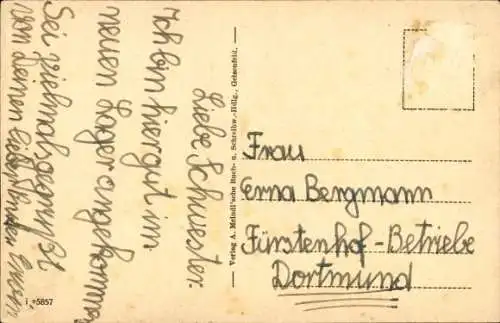 Liebe Schwester.
Ich bin hier gut im
neuen Lager angekommen
Sei vielmals gegrüßt
von Deinen liebenden
Verlag A. Meindl'sche Buch- u. Schreibw.-Hdlg., Geisenfeld.
Frau
Erna Bergmann
Fürstenhof-Betriebe
Dortmund
i *5857